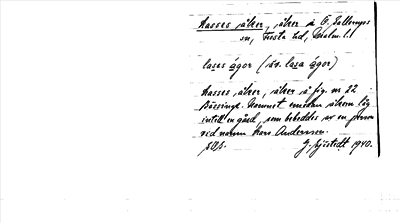 Hasses åker, åker å Ö. Sallerups
sn, Frosta hd, Malm. l.
hases ågor (äv. hasa ågor)
Hasses åker, åker å fig. nr 22
Bössinge. Namnet emedan åkern låg
intill en gård, som beboddes av en person
vid namn Hans Andersson.
G. Sjöstedt 1940.